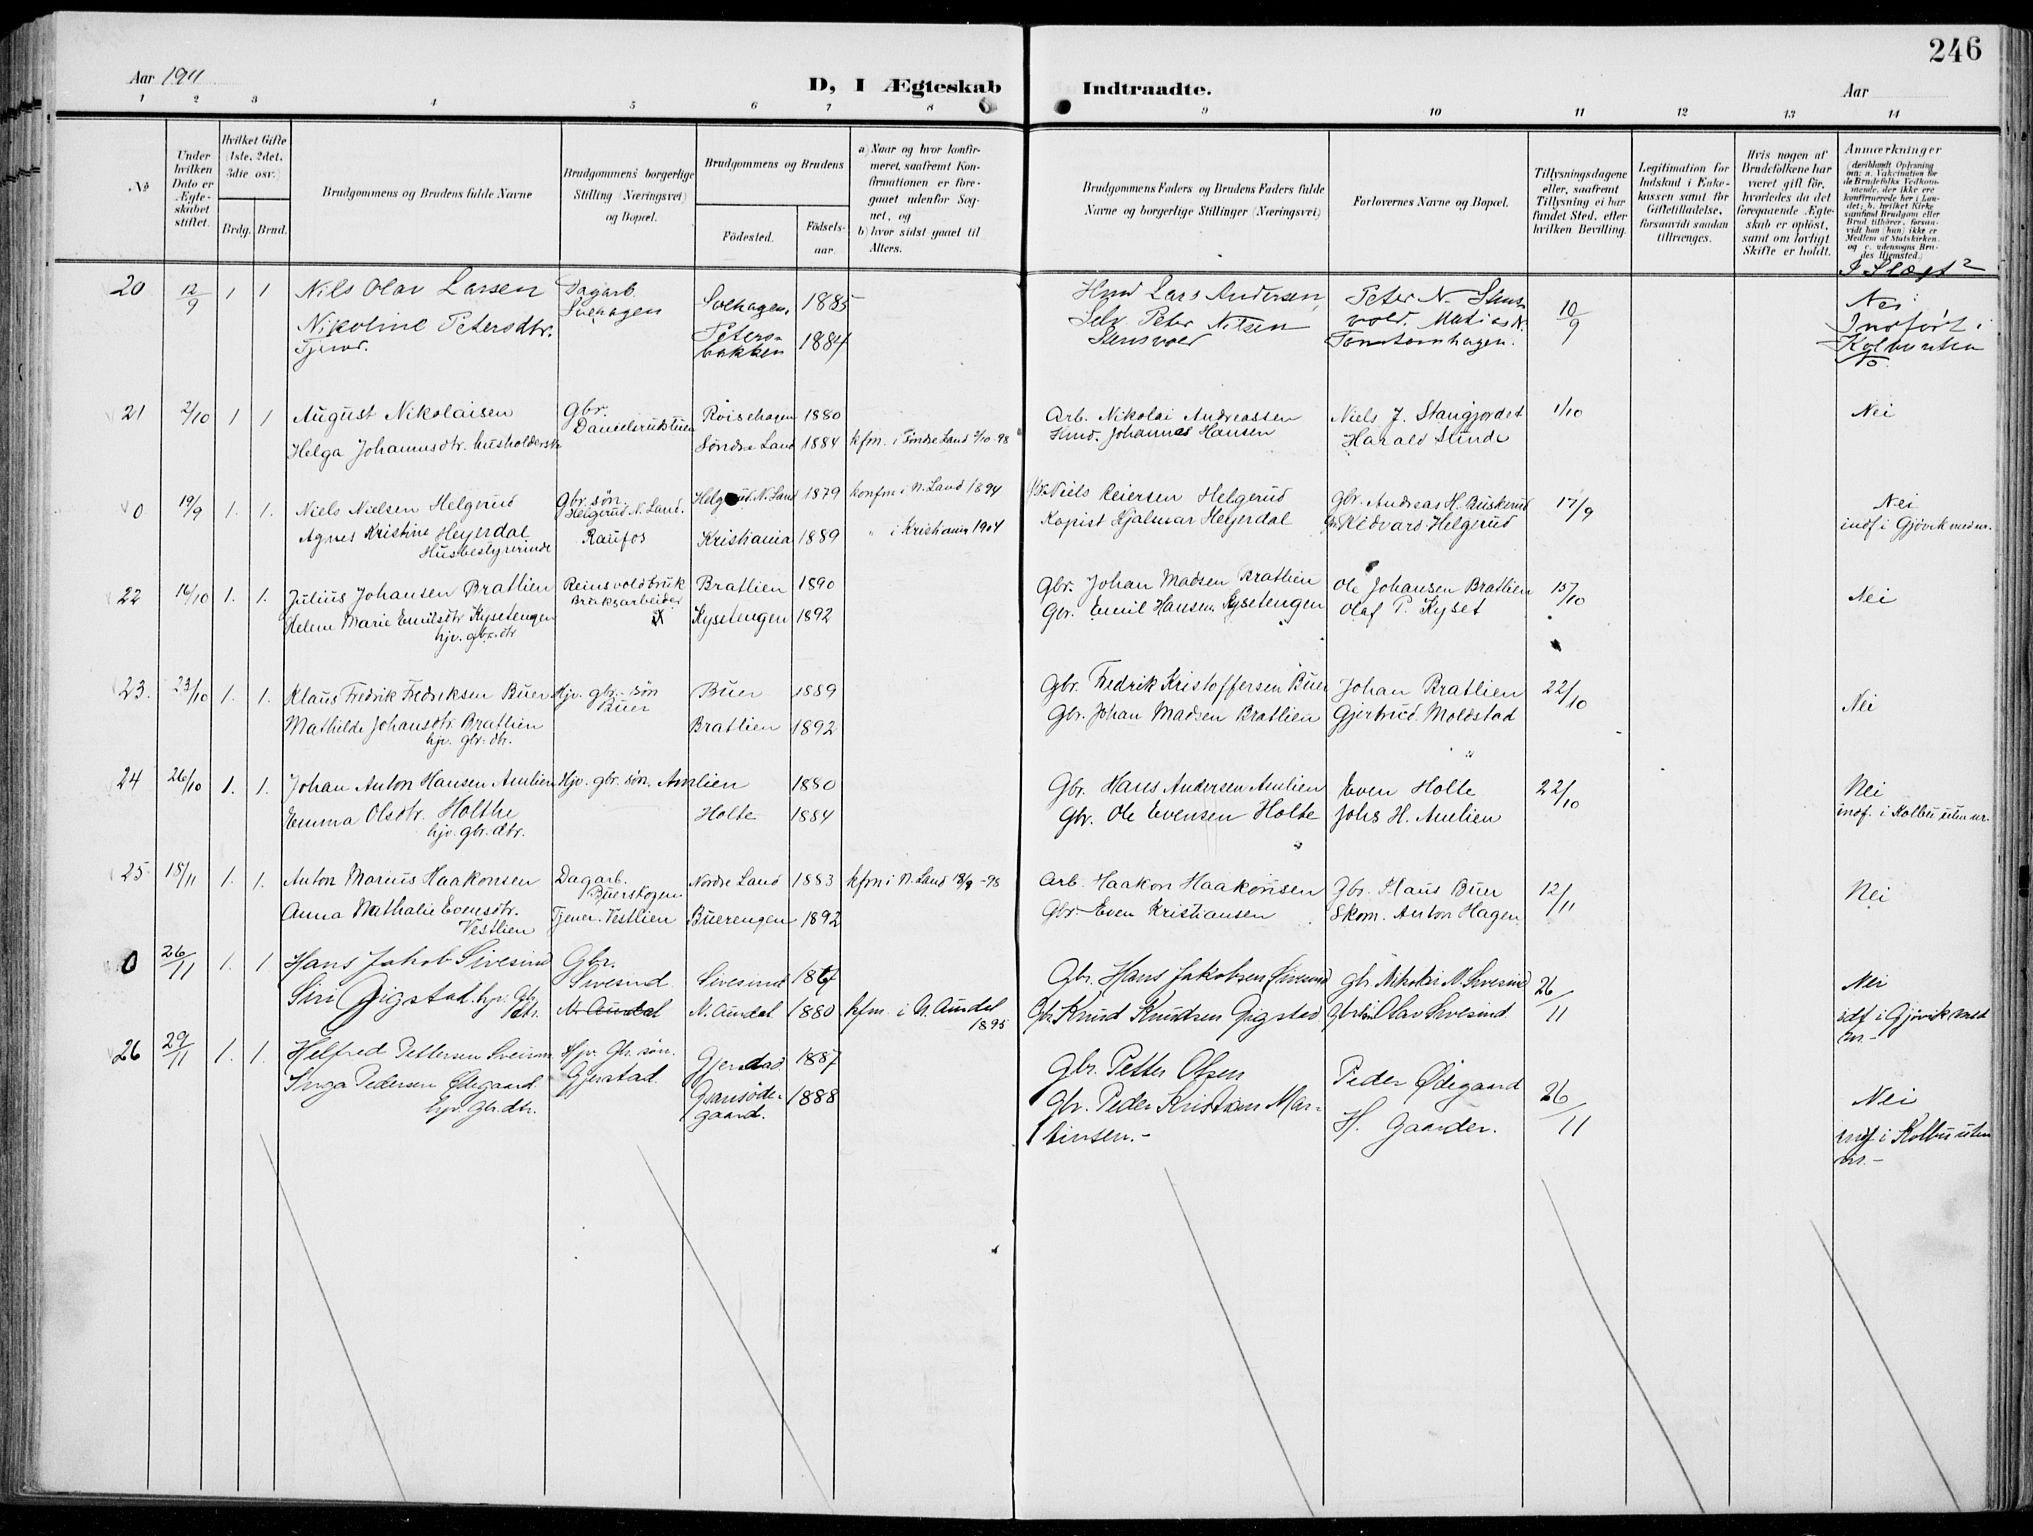 246
Aar 1911
D, I Ægteskab
Indtraadte.
Aar
1 2 3 4 5 6 7 8 9 10 11 12 13 14
No
Under hvilken Dato er Ægteskabet stiftet.
Hvilket Gifte (1ste, 2det, 3die osv.)
Brdg. Brud.
Brudgommens og Brudens fulde Navne
Brudgommens borgerlige Stilling (Næringsvei) og Bopæl.
Brudgommens og Brudens
Fødested.
Fødselsaar.
a) Naar og hvor konfirmeret, saafremt Konfirmationen er foregaaet udenfor Sognet, og
b) hvor sidst gaaet til Alters.
Brudgommens Faders og Brudens Faders fulde Navne og borgerlige Stillinger (Næringsvei)
Forlovernes Navne og Bopæl.
Tillysningsdagene eller, saafremt Tillysning ei har fundet Sted, efter hvilken Bevilling.
Legitimation for Indskud i Enkekassen samt for Giftetilladelse, forsaavidt saadan tiltrænges.
Hvis nogen af Brudefolkene har været gift før, hvorledes da det foregaaende Ægteskab er opløst, samt om lovligt Skifte er holdt.
Anmærkninger
I Slægt?
20 12/9 1 1 Nils Olav Larsen Dagarb. Solhagen Solhagen. 1885 Hmd Lars Andersen Peter N. Stensvold. Matias N. 10/9 Nei
Nikoline Petersdtr. Petersbakken 1884 Selv. Peter Nilsen Stensvold Tomtomhagen. Indført i Kolbu uten No.
Tjener.
21 2/10 1 1 August Nikolaisen Gbr. Danielsrudstuen Røisehagen 1880 Arb. Nikolai Andreassen Niels J. Stangjordet 1/10 Nei
Helga Johannsdtr. husholderske Søndre Land 1884 kfm. i Søndre Land 2/10-98 Hmd. Johannes Hansen Harald Lunde
0 19/9 1. 1. Niels Nielsen Helgerud Gbr. søn Helgerud N. Land. Helgerud N. Land 1879 konfm i N. Land 1894 Gbr Niels Reiersen Helgerud Gbr. Andreas H. Buskerud 17/9 Nei
Agnes Kristine Heyerdal Raufos Kristiania 1889 " i Kristiania 1904 Kopist Hjalmar Heyerdal Edvard Helgerud indf i Gjøvik med nr.
Husbestyrerinde
22 16/10 1. 1. Julius Johansen Bratlien Reinsvoldbruk Bruksarbeider Bratlien 1890 Gbr. Johan Madsen Bratlien Ole Johansen Bratlien 15/10 Nei
Helene Marie Emilsdtr Kysetengen Kysetengen 1892 Gbr. Emil Hansen Kysetengen Olaf P. Kyset
hjv. gbr. dtr
23. 23/10 1. 1. Klaus Fredrik Fredriksen Buer Hjv. gbr.-søn Buer Buer 1889 Gbr. Fredrik Kristoffersen Buer Johan Bratlien 22/10 Nei
Mathilde Johansdtr. Bratlien Bratlien 1892 Gbr. Johan Madsen Bratlien Gjertrud Moldstad
hjv. gbr. dtr.
24 26/10 1. 1. Johan Anton Hansen Amlien Hjv. gbr. søn. Amlien 1880 Gbr. Hans Andersen Amlien Even Holte 22/10 Nei
Emma Olsdtr. Holthe Holte 1884 Gbr. Ole Evensen Holte Johs H. Amlien indf. i Kolbu uten nr.
hjv. gbr. dtr.
25 18/11 1. 1. Anton Marius Haakonsen Dagarb. Buerskogen Nordre Land 1883 kfm i N. Land 18/9-98 Arb. Haakon Haakonsen Gbr. Klaus Buer 12/11 Nei
Anna Mathalie Evensdtr. Tjener. Vestlien Buerengen 1892 Gbr. Even Kristiansen Skom. Anton Hagen
Vestlien
0 26/11 1. 1 Hans Jakob Sivesind Gbr. Sivesind Sivesind 1867 Gbr. Hans Jakobsen Sivesind gbr. Nikolai N. Sivesind 26/11 Nei
Siri Gigstad. hjv. gbr. dtr. N. Aurdal N. Aurdal 1880 kfm. i N. Aurdal 1895 Gbr. Knud Knudsen Gigstad Olav Sivesind idf i Gjøvik med nr.-
26 29/11 1. 1. Helfred Pettersen Hjv. Gbr. søn. Gjerstad. Gjerstad. 1887 Gbr. Petter Olsen Peder Ødegaard 26/11 Nei
Inga Pedersen Ødegaard Gransødegaard. 1888 Gbr. Peder Kristian Martinsen.- H. Gaarder. indf. i Kolbu uten nr.-
hjv. gbr. dtr.